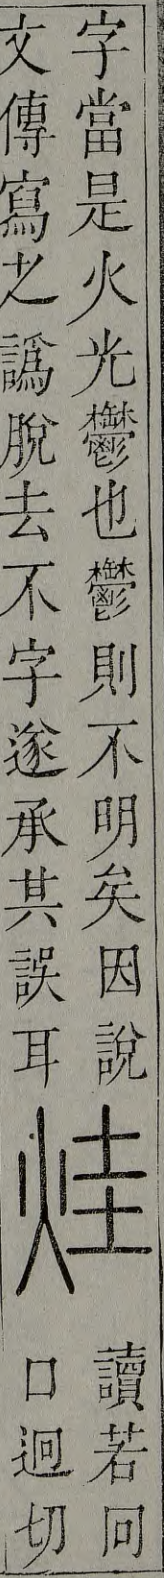 字當是火光鬱也鬱則不明矣因說
文傳寫之譌脫去不字遂承其誤耳
烓
讀若冋
口迥切